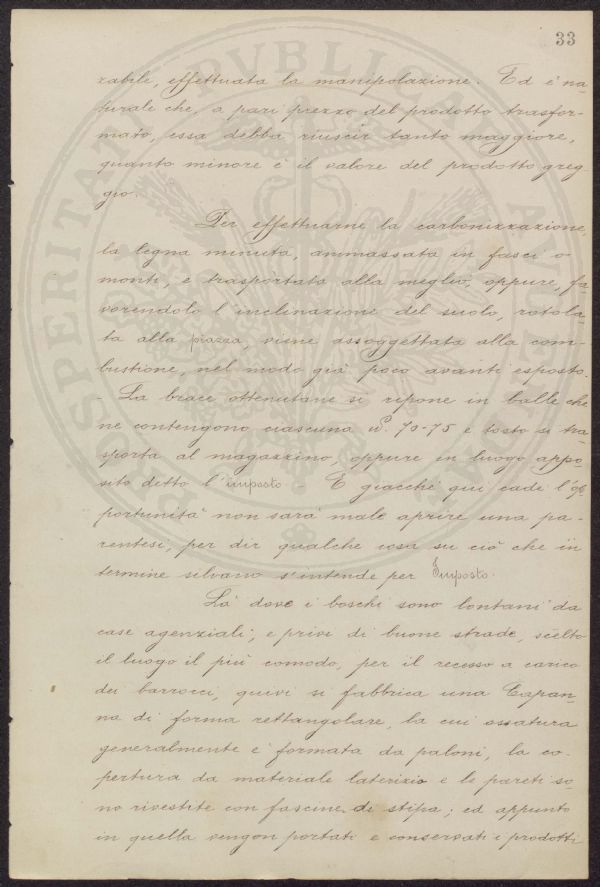 33
zabile, effettuata la manipolazione. Ed è na-
turale che, a pari prezzo del prodotto trasfor-
mato, essa debba riuscir tanto maggiore,
quanto minore è il valore del prodotto greg-
gio.
Per effettuarne la carbonizzazione,
la legna minuta, ammassata in fasci o
monti, e trasportata alla meglio, oppure, fa-
vorendolo l'inclinazione del suolo, rotola-
ta alla piazza, viene assoggettata alla com-
bustione, nel modo già poco avanti esposto.
- La brace ottenutane si ripone in balle che
ne contengono ciascuna 70-75 e tosto si tra-
sporta al magazzino, oppure in luogo appo-
sito ditto l'imposto - E giacchè qui cade l'op-
portunità non sarà male aprire una pa-
rentesi, per dir qualche cosa su ciò che in
termine silvano s'intende per Imposto.
Là dove i boschi sono lontani da
case agenziali, e privi di buone strade, scelto
il luogo il più comodo, per il recesso a carico
dei barrocci, quivi si fabbrica una Capan-
na di forma rettangolare, la cui ossatura
generalmente è formata da paloni, la co-
pertura da materiale laterizio e le pareti so-
no rivestite con fascine di stipa; ed appunto
in quella vengon portati e conservati i prodotti
PROSPERITATI PVBLICAE AVGENDAE